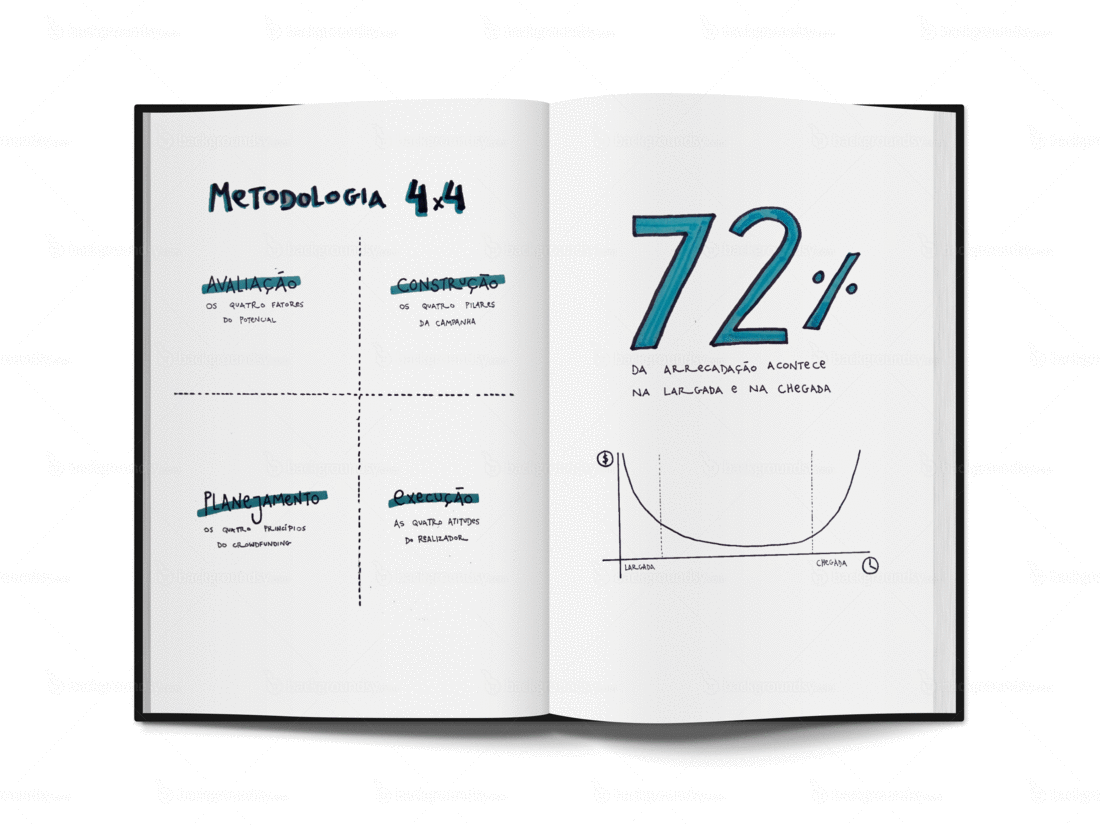 Metodologia 4x4
Avaliação
os quatro fatores
do potencial
Construção
os quatro pilares
da campanha
Planejamento
os quatro princípios
do crowdfunding
execução
as quatro atitudes
do realizador
72%
da arrecadação acontece
na largada e na chegada
$
largada
chegada